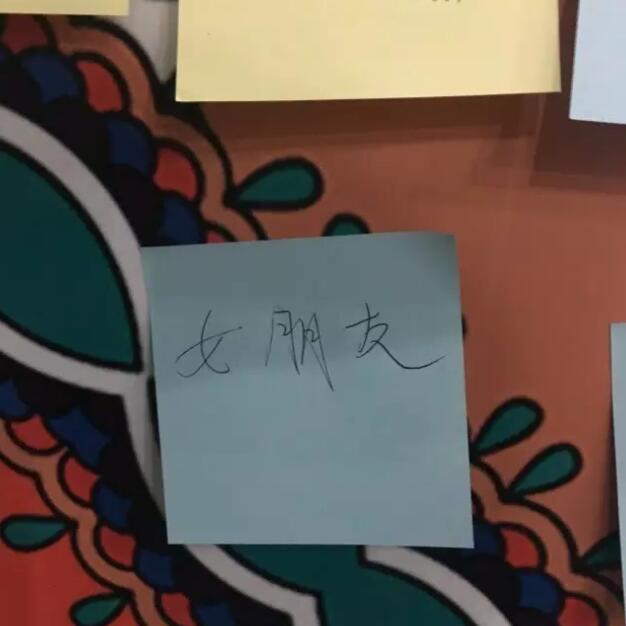 女朋友